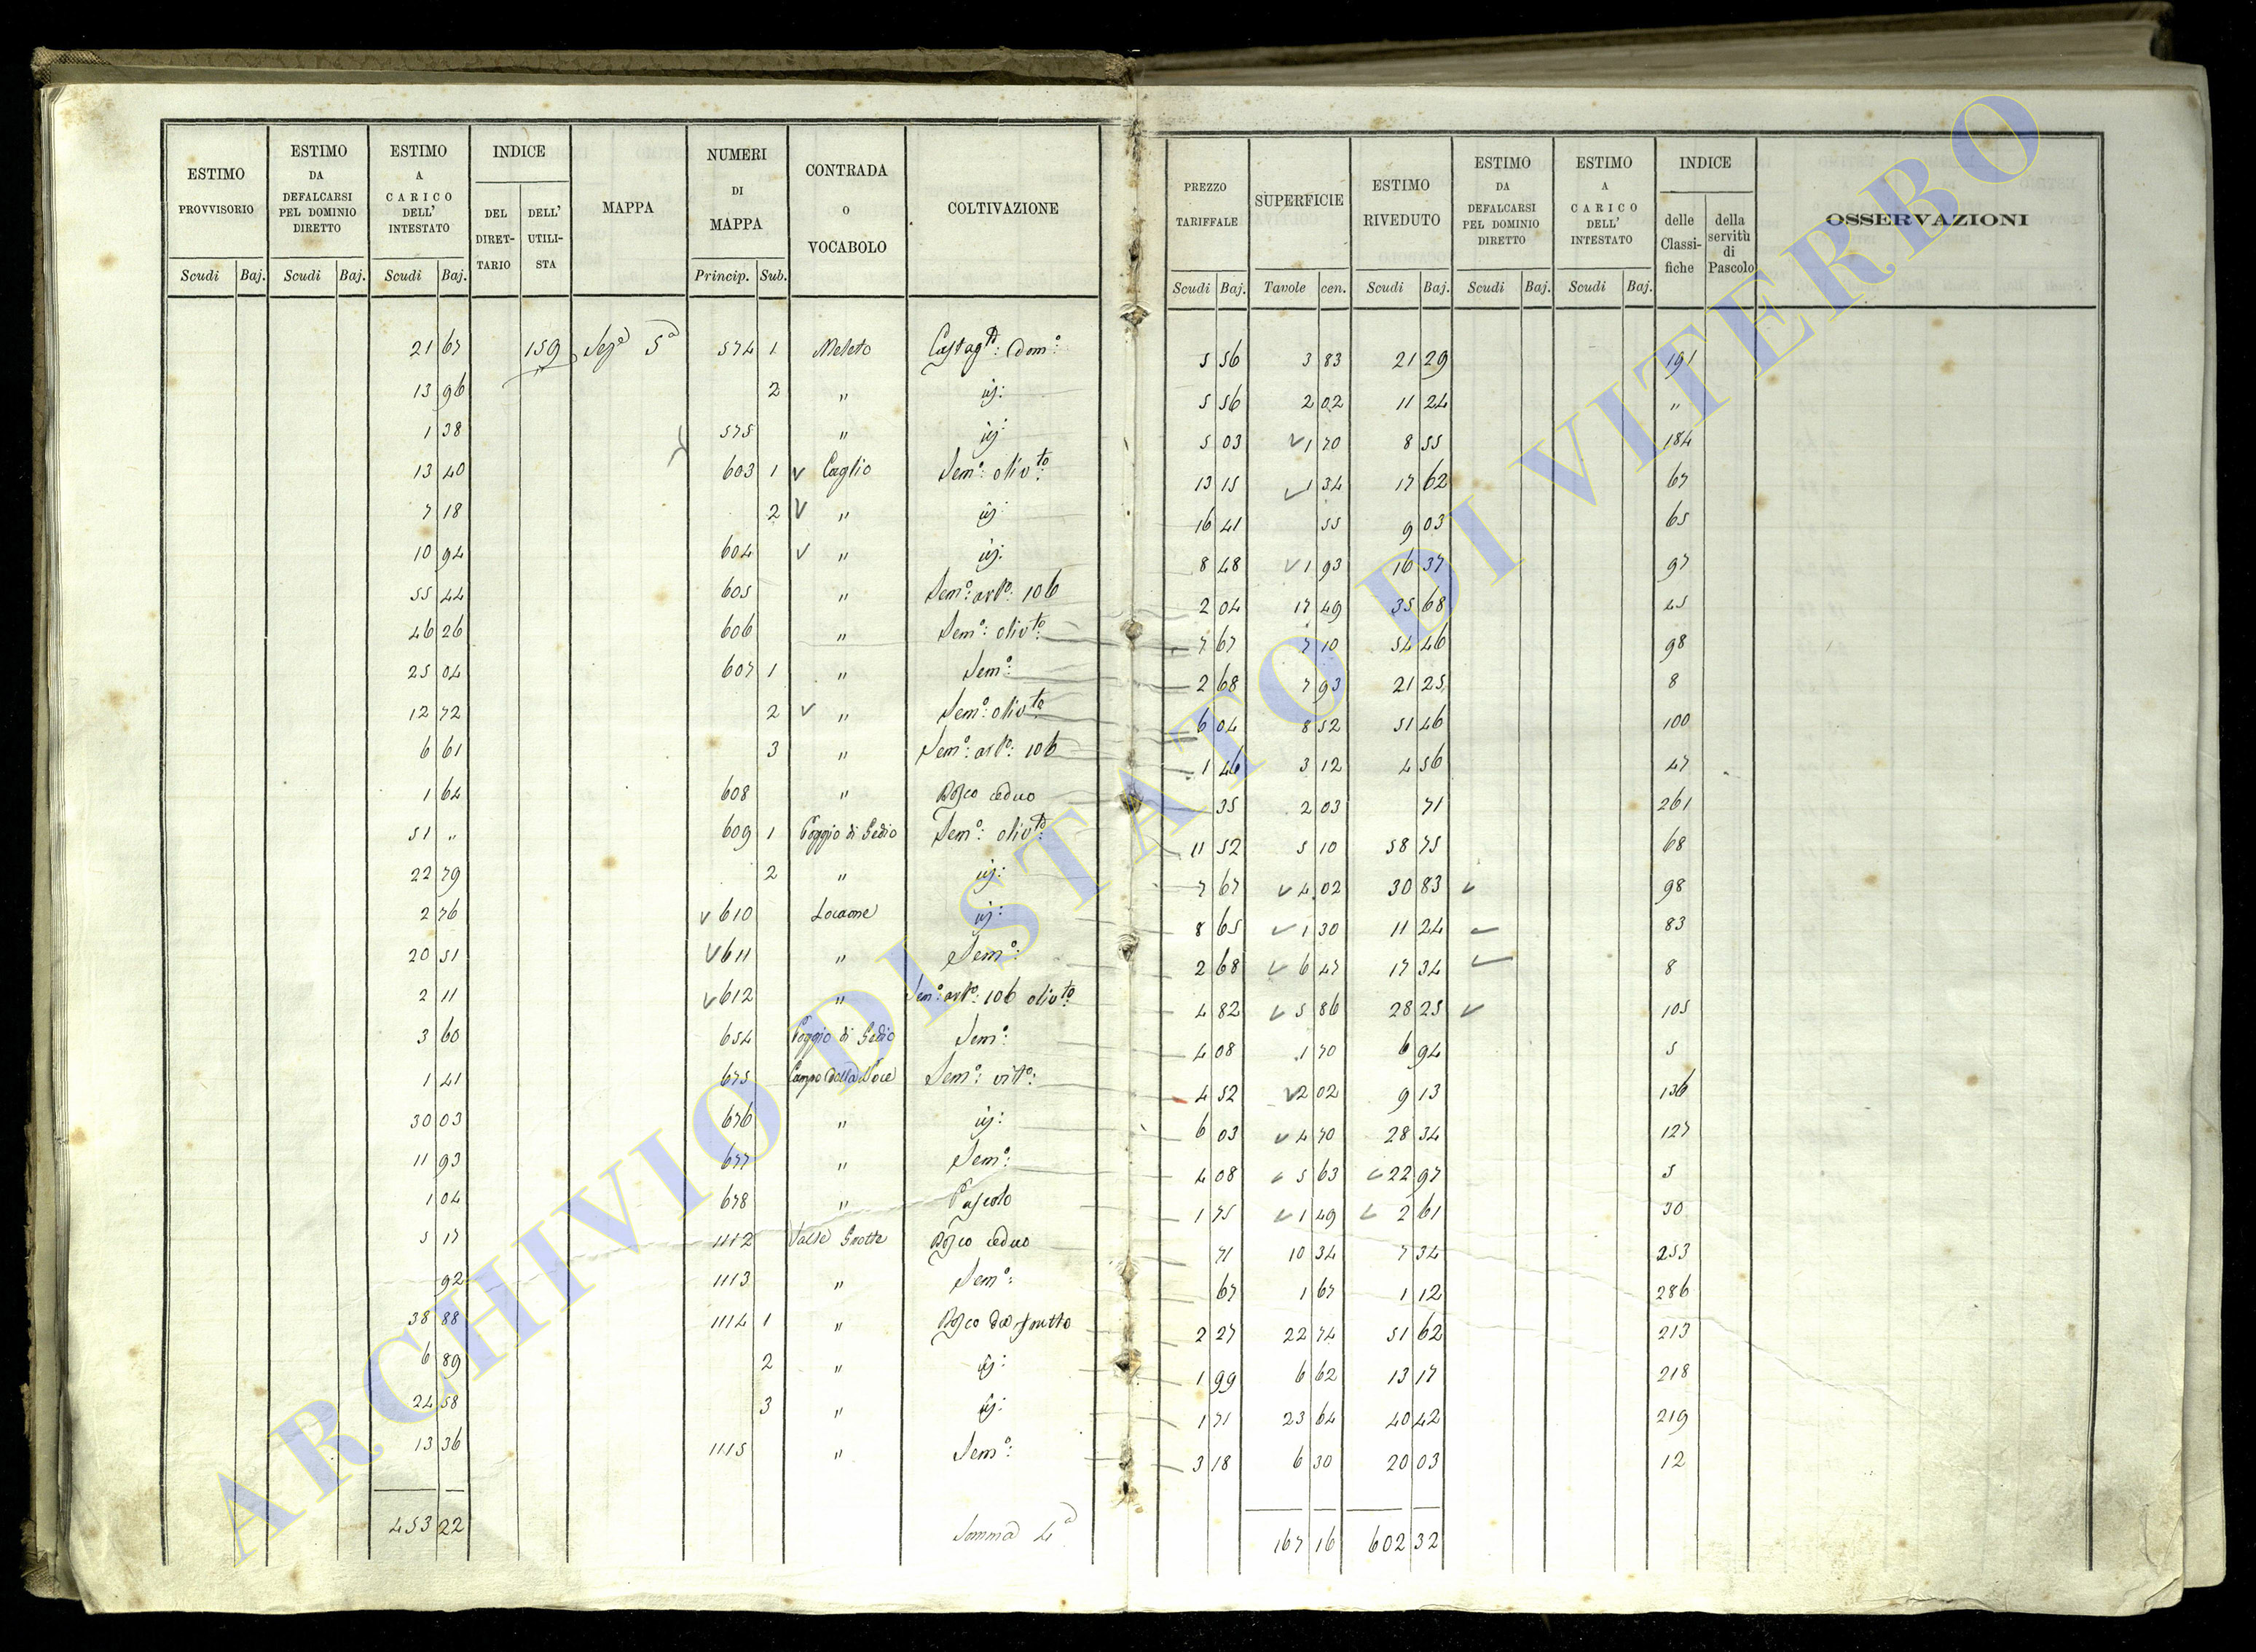 ESTIMO PROVVISORIO | ESTIMO DA DEFALCARSI PEL DOMINIO DIRETTO | ESTIMO A CARICO DELL' INTESTATO | INDICE DEL DIRETTARIO | DELL' UTILISTA | MAPPA | NUMERI DI MAPPA | CONTRADA O VOCABOLO | COLTIVAZIONE | PREZZO TARIFFALE | SUPERFICIE | ESTIMO RIVEDUTO | ESTIMO DA DEFALCARSI PEL DOMINIO DIRETTO | ESTIMO A CARICO DELL' INTESTATO | INDICE delle Classifiche | della servitù di Pascolo | OSSERVAZIONI
Scudi Baj. | Scudi Baj. | Scudi Baj. | Princip. Sub. | Scudi Baj. | Tavole cen. | Scudi Baj. | Scudi Baj. | Scudi Baj.
21 67 | 159 | Sez.a 5a | 574 1 | Meleto | Castag.to: Dom.o: | 5 56 | 3 83 | 21 29 | 191
13 96 | 2 | " | id: | 5 56 | 2 02 | 11 24 | "
1 38 | 575 | " | id: | 5 03 | 1 70 | 8 55 | 184
13 40 | 603 1 | Caglio | Sem.o: oliv.to: | 13 15 | 1 34 | 17 62 | 67
7 18 | 2 | " | id: | 16 41 | 55 | 9 03 | 65
10 94 | 604 | " | id: | 8 48 | 1 93 | 16 37 | 97
55 44 | 605 | " | Sem.o: art.o: 106 | 2 04 | 17 49 | 35 68 | 45
46 26 | 606 | " | Sem.o: oliv.to: | 7 67 | 7 10 | 54 46 | 98
25 04 | 607 1 | " | Sem.o: | 2 68 | 7 93 | 21 25 | 8
12 72 | 2 | " | Sem.o: oliv.to | 6 04 | 8 52 | 51 46 | 100
6 61 | 3 | " | Sem.o: art.o: 106 | 1 46 | 3 12 | 4 56 | 47
1 64 | 608 | " | Bosco ceduo | 35 | 2 03 | 71 | 261
51 " | 609 1 | Poggio di Gedio | Sem.o: oliv.to: | 11 52 | 5 10 | 58 75 | 68
22 79 | 2 | " | id: | 7 67 | 4 02 | 30 83 | 98
2 76 | 610 | Locaone | id: | 8 65 | 1 30 | 11 24 | 83
20 51 | 611 | " | Sem.o: | 2 68 | 6 47 | 17 34 | 8
2 11 | 612 | " | Sem.o: art.o: 106 oliv.to: | 4 82 | 5 86 | 28 25 | 105
3 60 | 654 | Poggio di Gedio | Sem.o: | 4 08 | 1 70 | 6 94 | 5
1 41 | 675 | Campo della Noce | Sem.o: vit.o: | 4 52 | 2 02 | 9 13 | 136
30 03 | 676 | " | id: | 6 03 | 4 70 | 28 34 | 127
11 93 | 677 | " | Sem.o: | 4 08 | 5 63 | 22 97 | 5
1 04 | 678 | " | Pascolo | 1 75 | 1 49 | 2 61 | 30
5 17 | 1112 | Valle Grotte | Bosco ceduo | 71 | 10 34 | 7 34 | 253
92 | 1113 | " | Sem.o: | 67 | 1 67 | 1 12 | 286
38 88 | 1114 1 | " | Bosco da frutto | 2 27 | 22 74 | 51 62 | 213
6 89 | 2 | " | id: | 1 99 | 6 62 | 13 17 | 218
24 58 | 3 | " | id: | 1 71 | 23 64 | 40 42 | 219
13 36 | 1115 | " | Sem.o: | 3 18 | 6 30 | 20 03 | 12
453 22 | Somma 4a | 167 16 | 602 32
ARCHIVIO DI STATO DI VITERBO